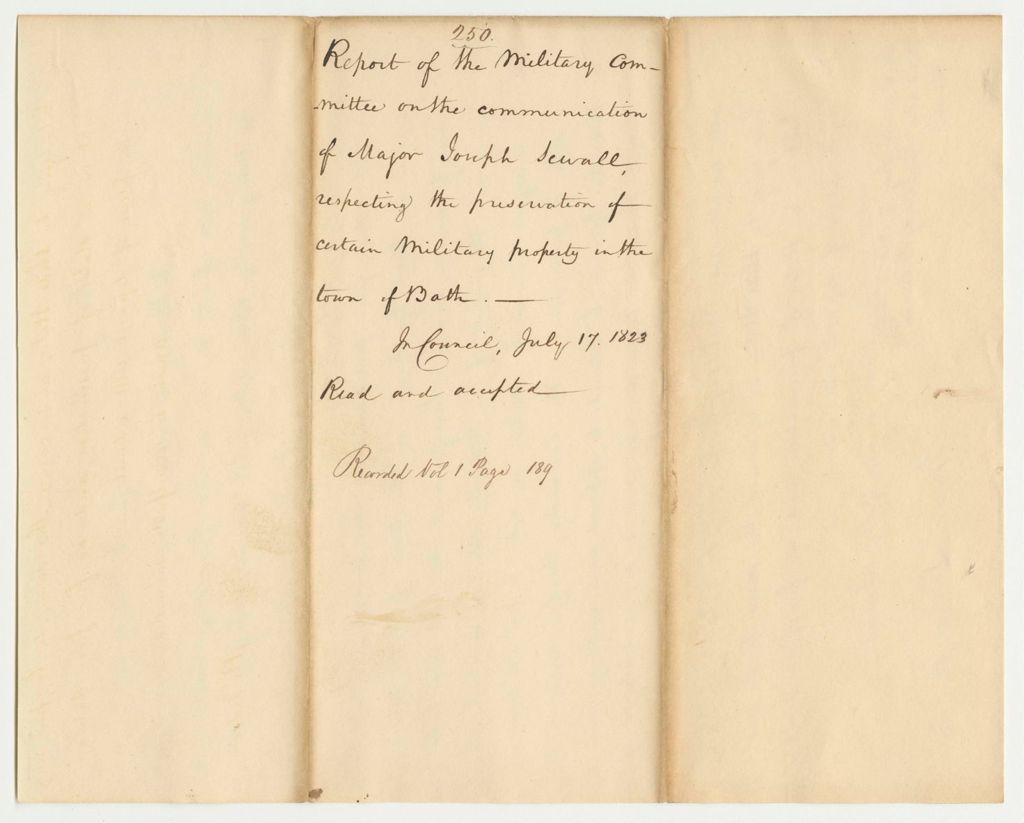 250.
Report of the Military Com-
-mittee on the communication
of Major Joseph Sewall,
respecting the preservation of
certain Military property in the
town of Bath. —
In Council, July 17. 1823
Read and accepted
Recorded Vol 1 Page 189